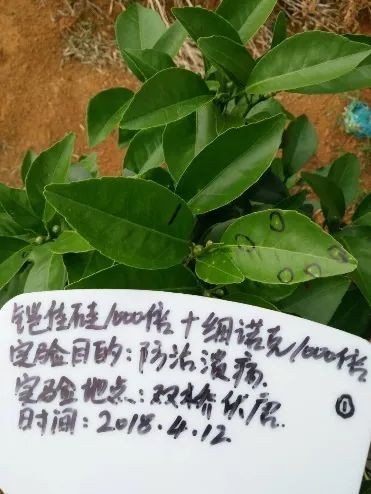 铠佳硅1000倍+细诺克1000倍
实验目的:防治溃病.
实验地点:双桥伏居.
日时间:2018.4.12
①